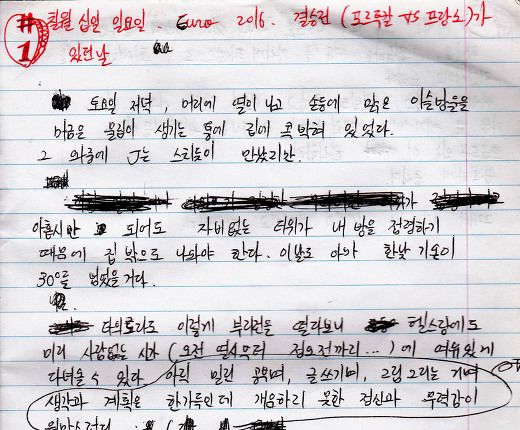 #1 칠월 십일 일요일. Euro 2016. 결승전 (포르투갈 VS 프랑스)가
있던 날
토요일 저녁, 머리에 열이 나고 손등에 맑은 이슬방울을
머금은 물집이 생기는 통에 집에 콕 박혀 있었다.
그 와중에 J는 스티들이 만났지만.
아홉시만 되어도 자비없는 더위가 내 방을 점령하기
때문에 집 밖으로 나와야 한다. 이날도 아마 한낮 기온이
30°를 넘었을 거다.
타의로라도 이렇게 부지런을 떨다보니 헬스장에도
미리 사람없는 시간 (오전 열시부터 정오전까지...)에 여유있게
다녀올 수 있다. 아직 밀린 공부며, 글쓰기며, 그림 그리는 거며
생각과 계획은 한가득인데 개운하지 못한 정신과 무력감이